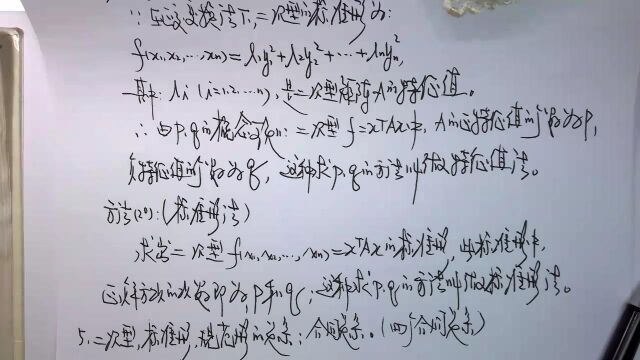 ∵ 正交变换法下,二次型的标准形为:
f(x₁,x₂,…,xn)=λ₁y₁²+λ₂y₂²+…+λnyn²,
其中 λi (i=1,2,…n),是二次型矩阵A的特征值。
∴ 由p,q的概念可知:二次型f=xᵀAx中,A的正特征值的个数为p,
负特征值的个数为q,这种求p,q的方法叫做特征值法。
方法(2º):(标准形法)
求出二次型f(x₁,x₂,…,xn)=xᵀAx的标准形,此标准形中,
正、负平方项的个数即为p和q,这种求p,q的方法叫做标准形法。
5.二次型,标准形,规范形的关系:合同关系。(四个合同关系)